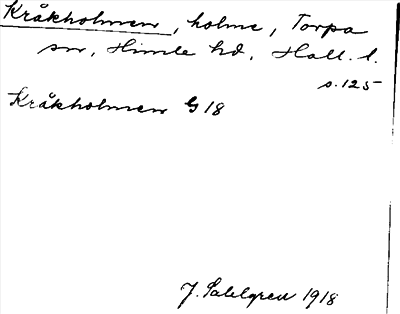 Kråkholmen, holme, Torpa
sn, Himle hd, Hall. l.
s. 125
Kråkholmen G 18
J. Sahlgren 1918